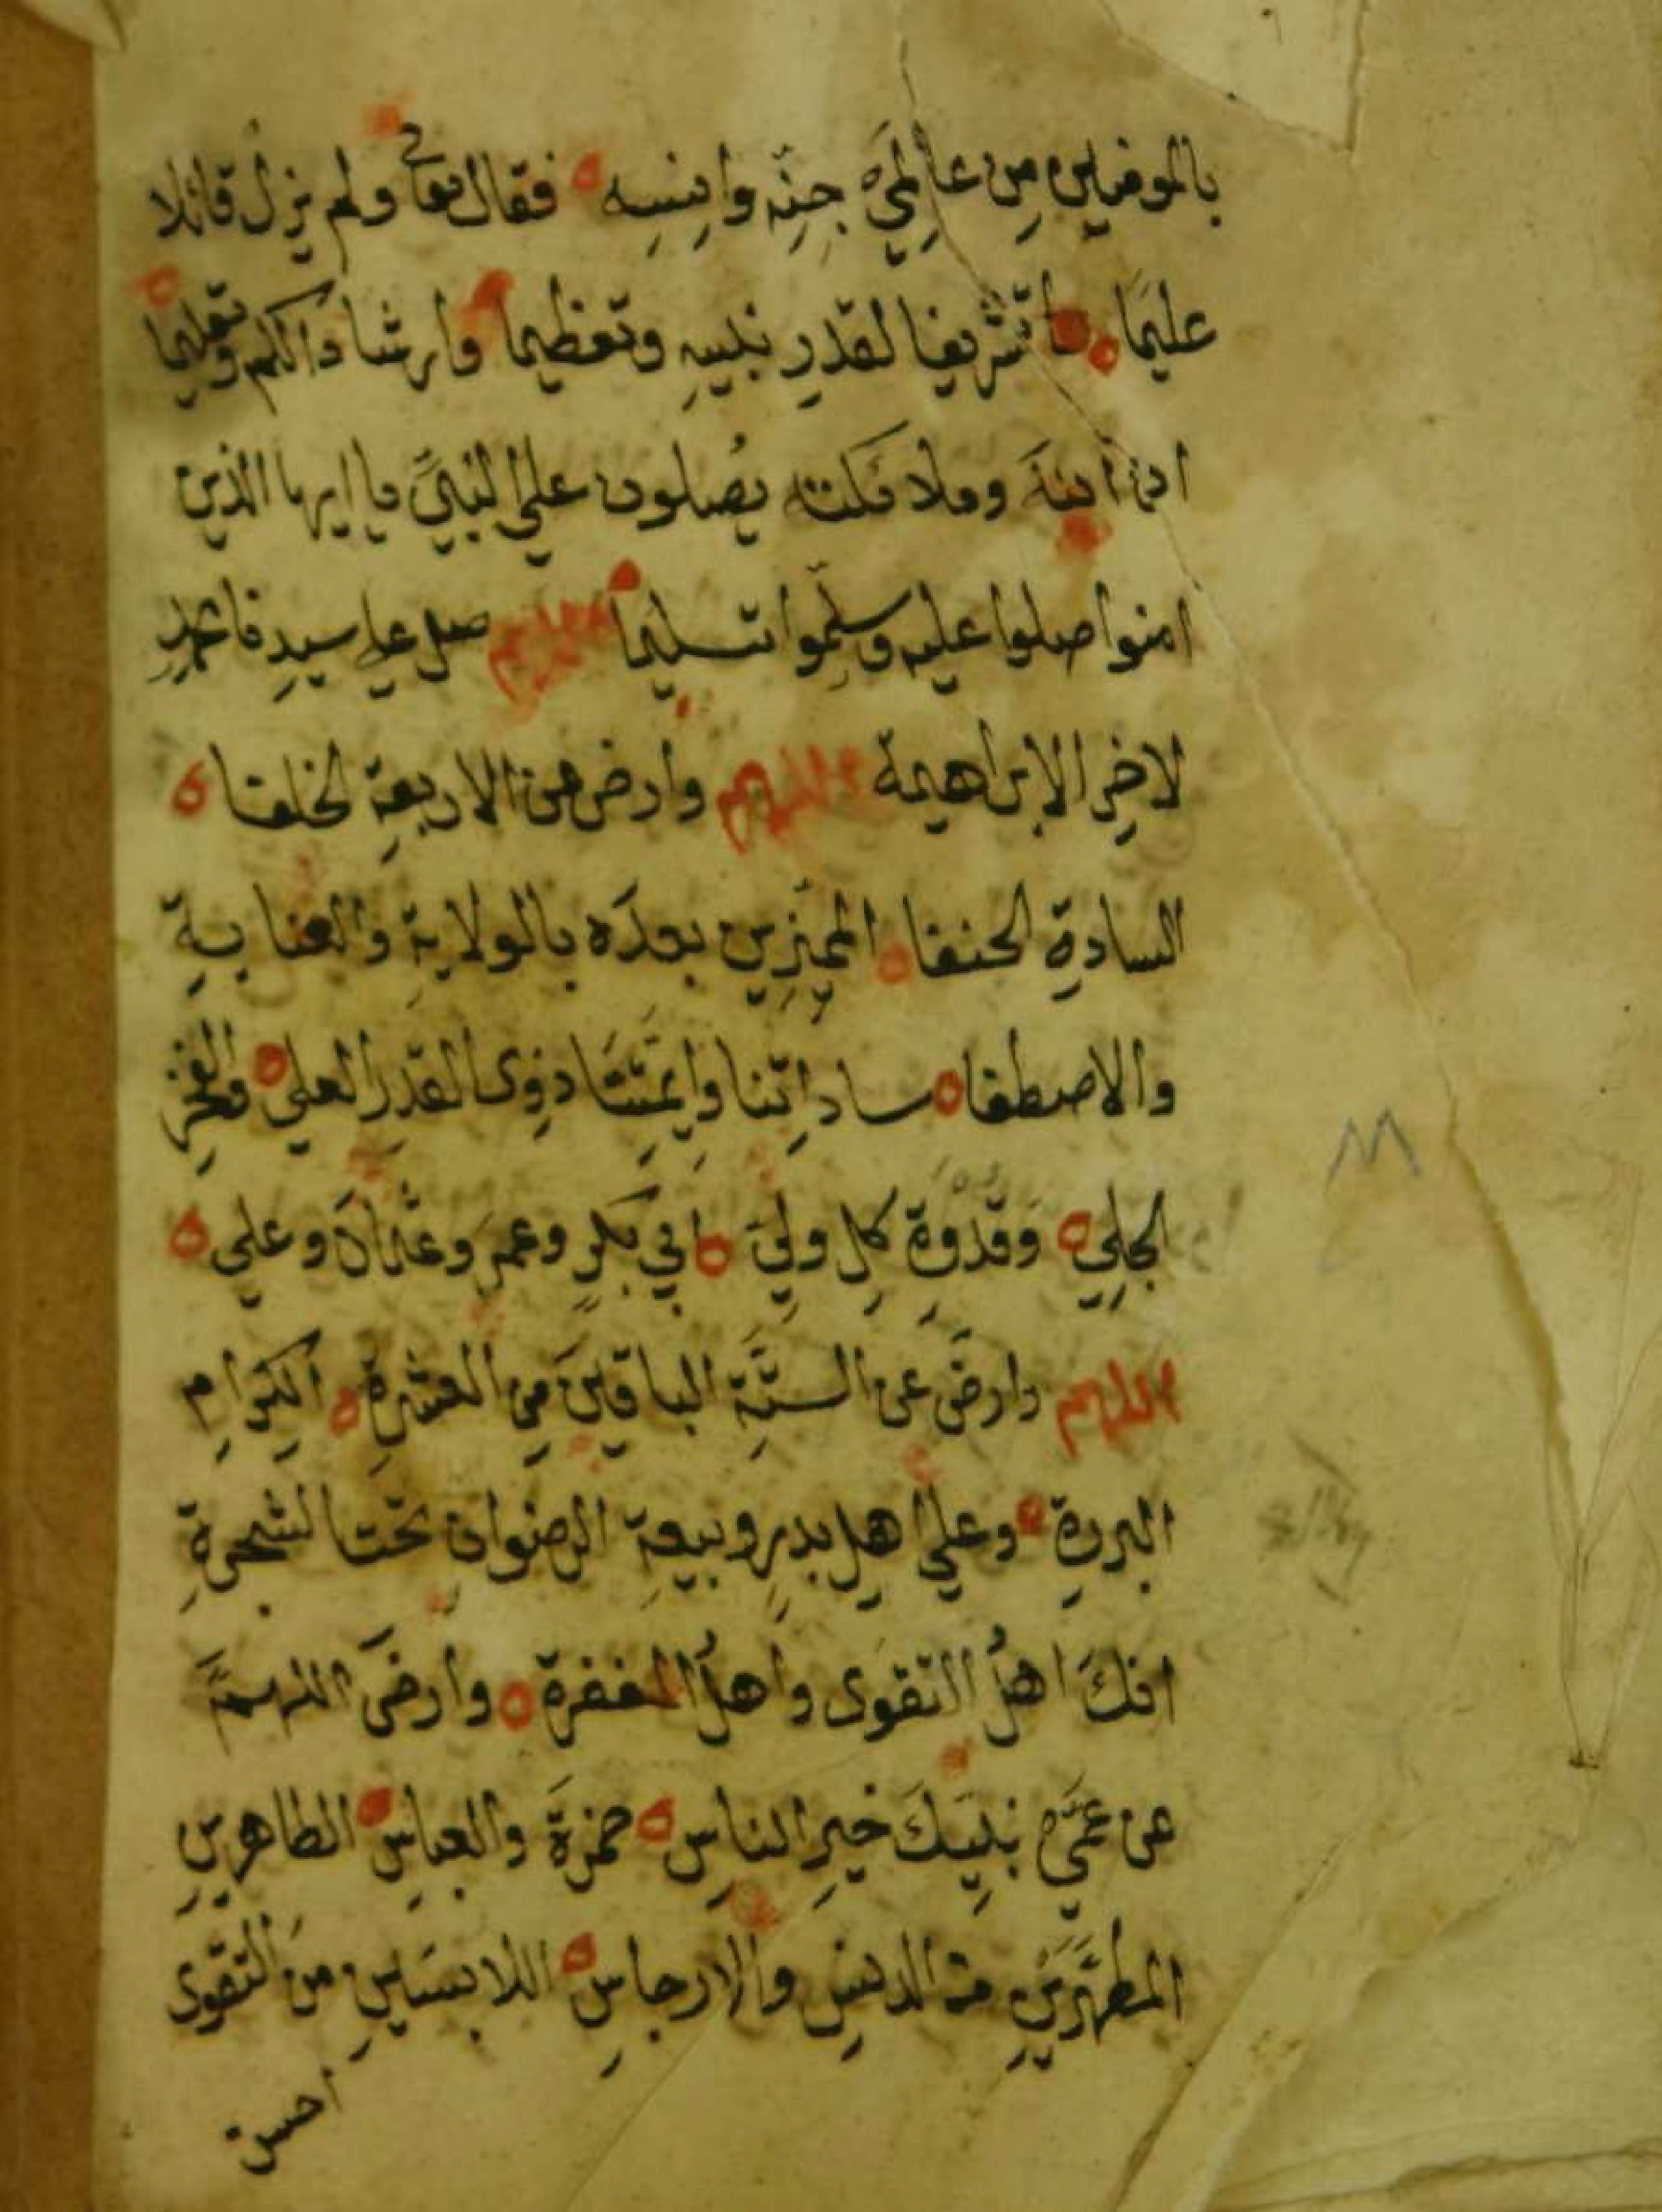 بالمومنين من عالمي جنه وانسه فقال تعالى ولم يزل قائلا
عليما تشريفا لقدر نبيه وتعظيما وارشادا لكم وتعليما
ان الله وملائكته يصلون على النبي يا ايها الذين
امنوا صلوا عليه وسلموا تسليما اللهم صل على سيدنا محمد
لاخر الابراهيمة اللهم وارض عن الاربعة الخلفا
السادة الحنفا المميزين بعده بالولاية والعناية
والاصطفا ساداتنا وايمتنا ذوى القدر العلي والفخر
الجلي وقدوة كل ولي ابي بكر وعمر وعثمان وعلي
اللهم وارض عن الستة الباقين من العشرة الكرام
البررة وعلى اهل بدر وبيعة الرضوان تحت الشجرة
انك اهل التقوى واهل المغفرة وارض اللهم
عن عمي نبيك خير الناس حمزة والعباس الطاهرين
المطهرين من الدنس والارجاس اللابسين من التقوى
احسن